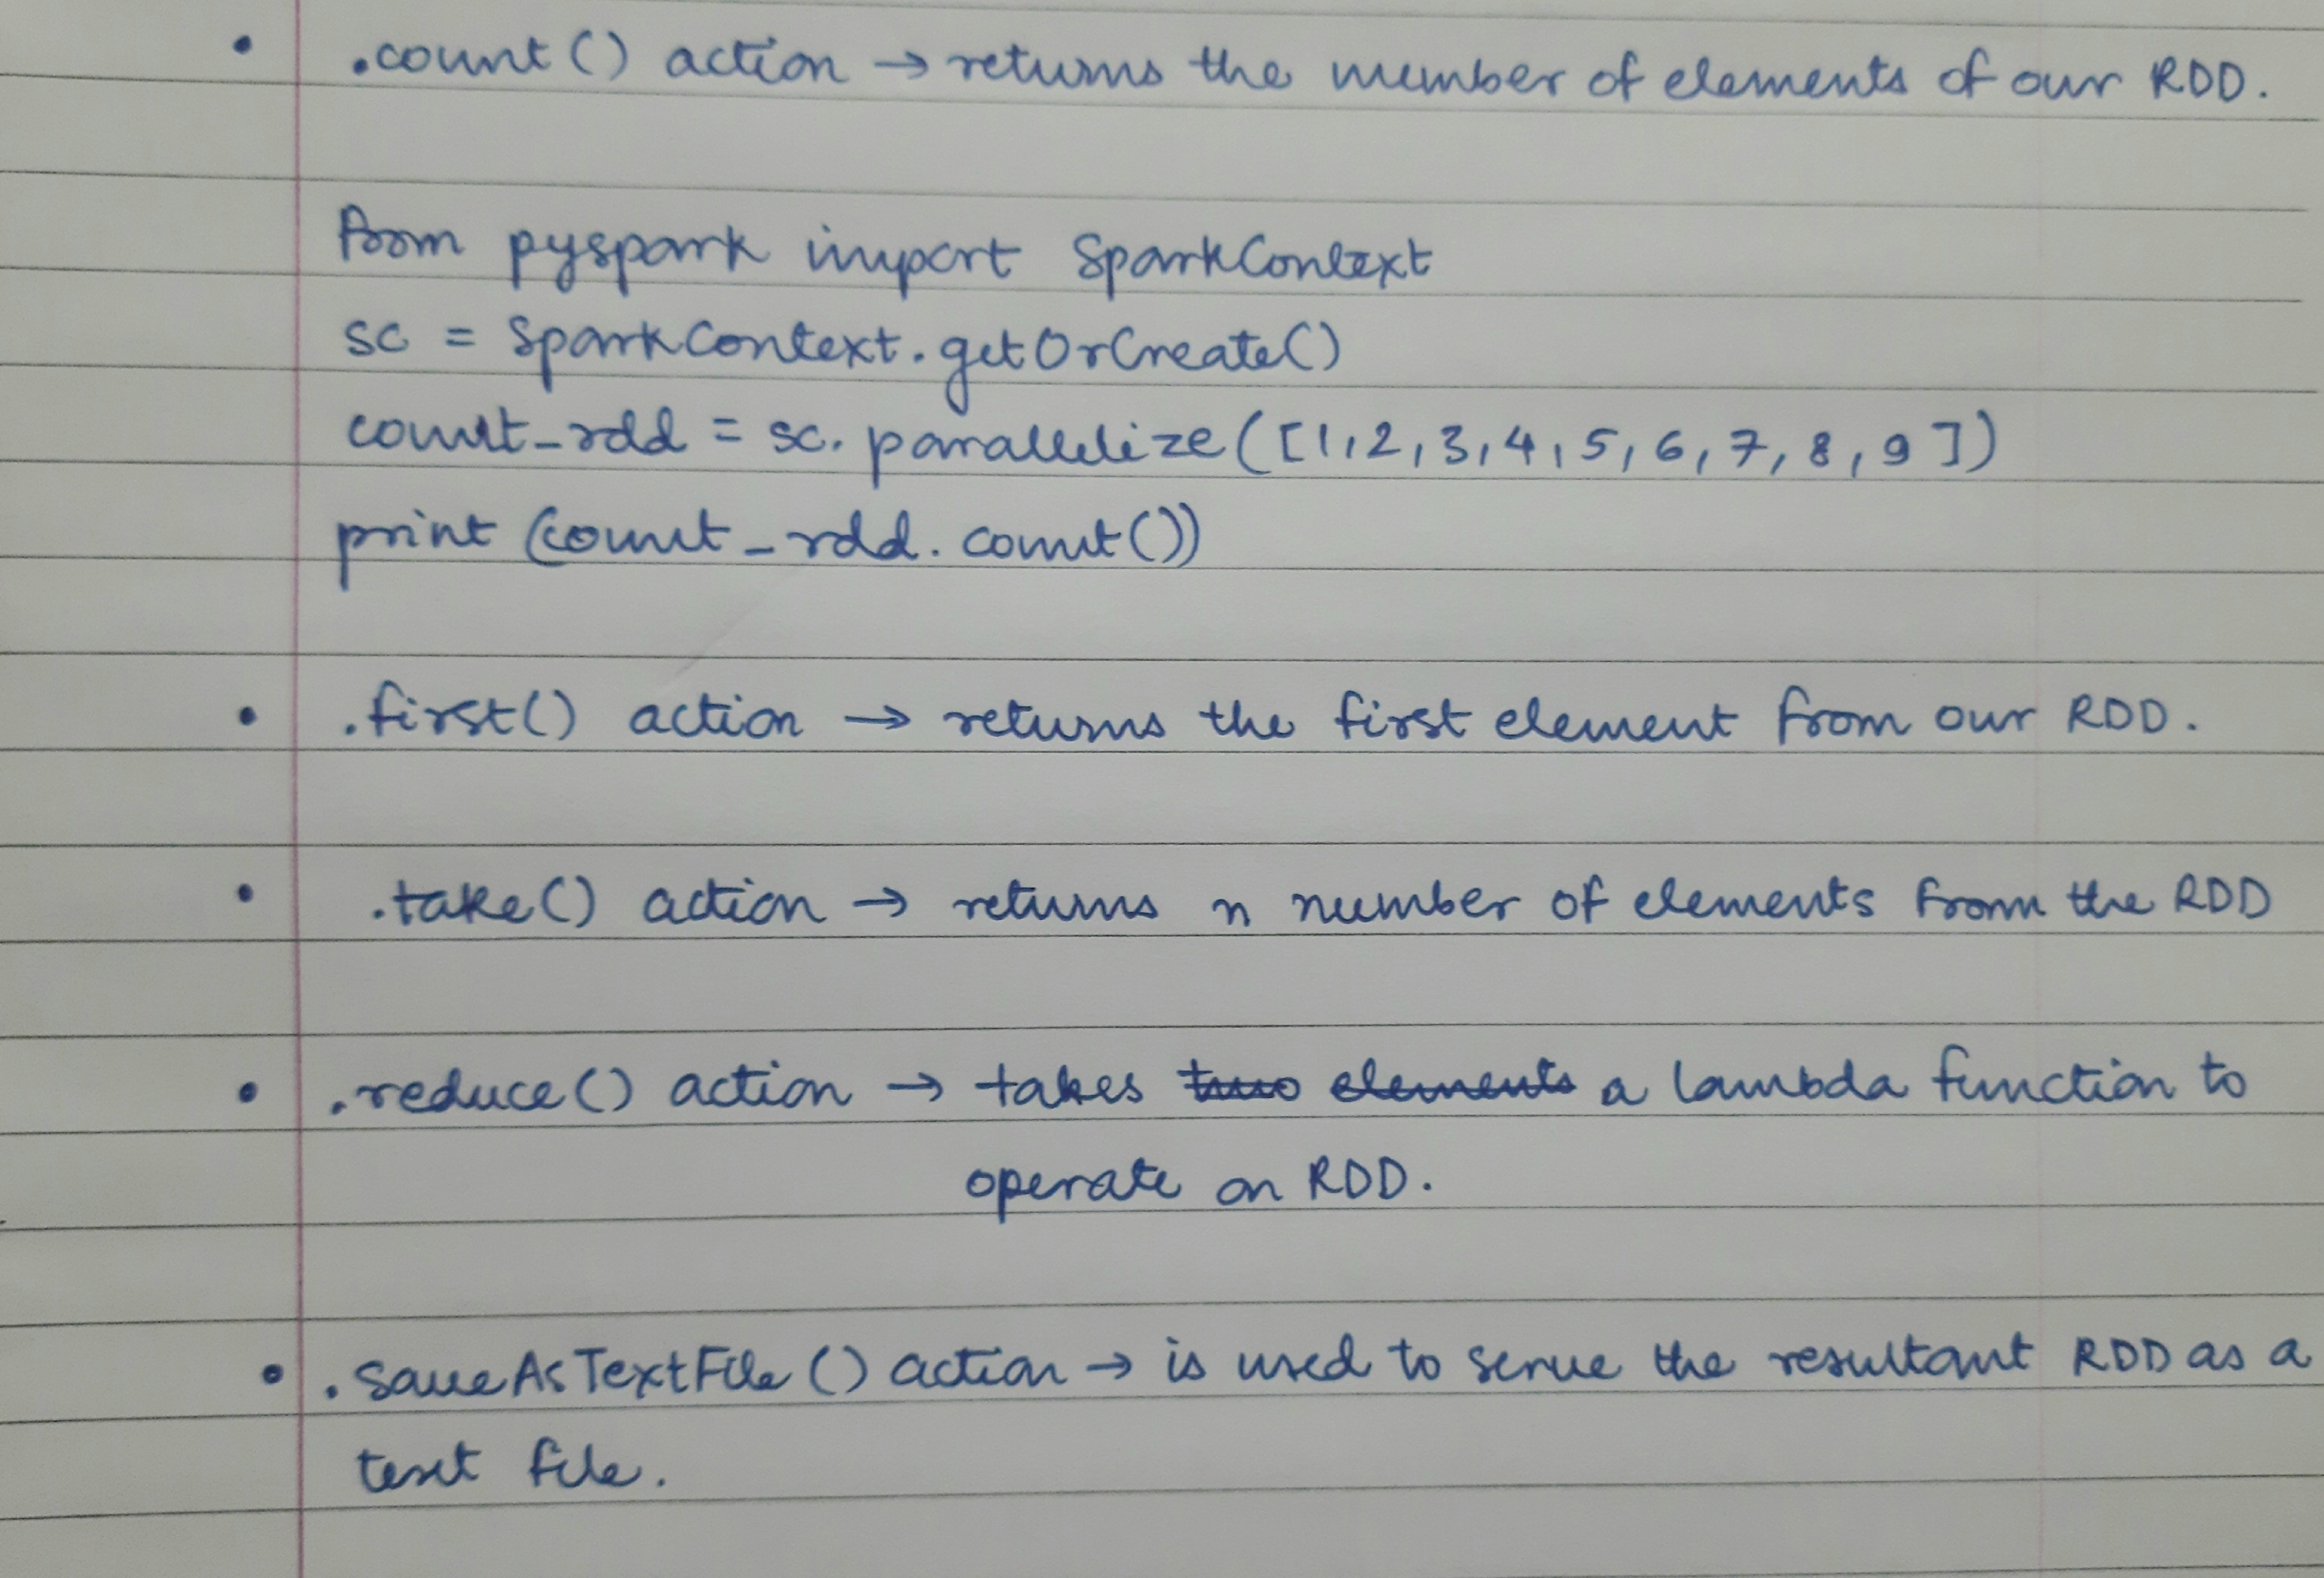 • .count() action → returns the number of elements of our RDD.
from pyspark import SparkContext
sc = SparkContext.getOrCreate()
count_rdd = sc.parallelize([1,2,3,4,5,6,7,8,9])
print(count_rdd.count())
• .first() action → returns the first element from our RDD.
• .take() action → returns n number of elements from the RDD
• .reduce() action → takes two elements a lambda function to
operate on RDD.
• .saveAsTextFile() action → is used to serve the resultant RDD as a
text file.